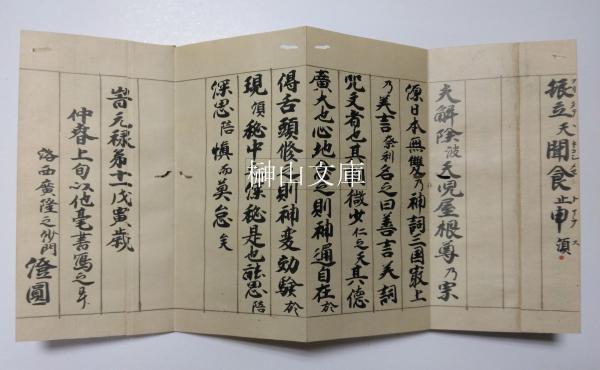 振立天聞食止申須
夫解除波天児屋根尊乃宗
源日本無雙乃神詞三国最上
乃美言祭利名之曰善言美詞
呪文者也其微少仁之天其德
廣大也心地之則神通自在於
得舌頭修則神変効験於
現須秘中深秘是也能思陪
深思陪慎而莫怠矣
時元禄第十一戊寅歳
仲春上旬以他毫書写之畢
洛西廣隆之沙門 澄圓
榊山文庫